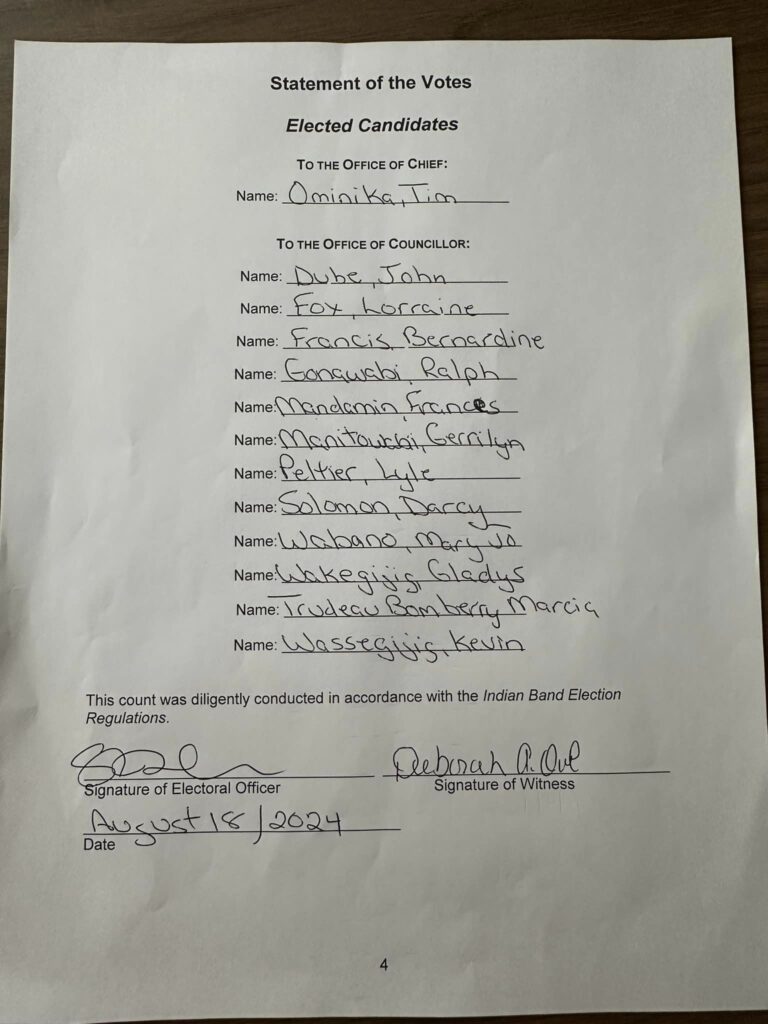 Statement of the Votes
Elected Candidates
TO THE OFFICE OF CHIEF:
Name: Ominika, Tim
TO THE OFFICE OF COUNCILLOR:
Name: Dube, John
Name: Fox, Lorraine
Name: Francis, Bernardine
Name: Gonawabi, Ralph
Name: Mandamin, Frances
Name: Manitowabi, Gerrilyn
Name: Peltier, Lyle
Name: Solomon, Darcy
Name: Wabano, Mary Jo
Name: Wakegijig, Gladys
Name: Trudeau Bomberry Marcia
Name: Wassegijig, Kevin
This count was diligently conducted in accordance with the Indian Band Election
Regulations.
Deborah A.
Signature of Electoral Officer Signature of Witness
August 18/2024
Date
4